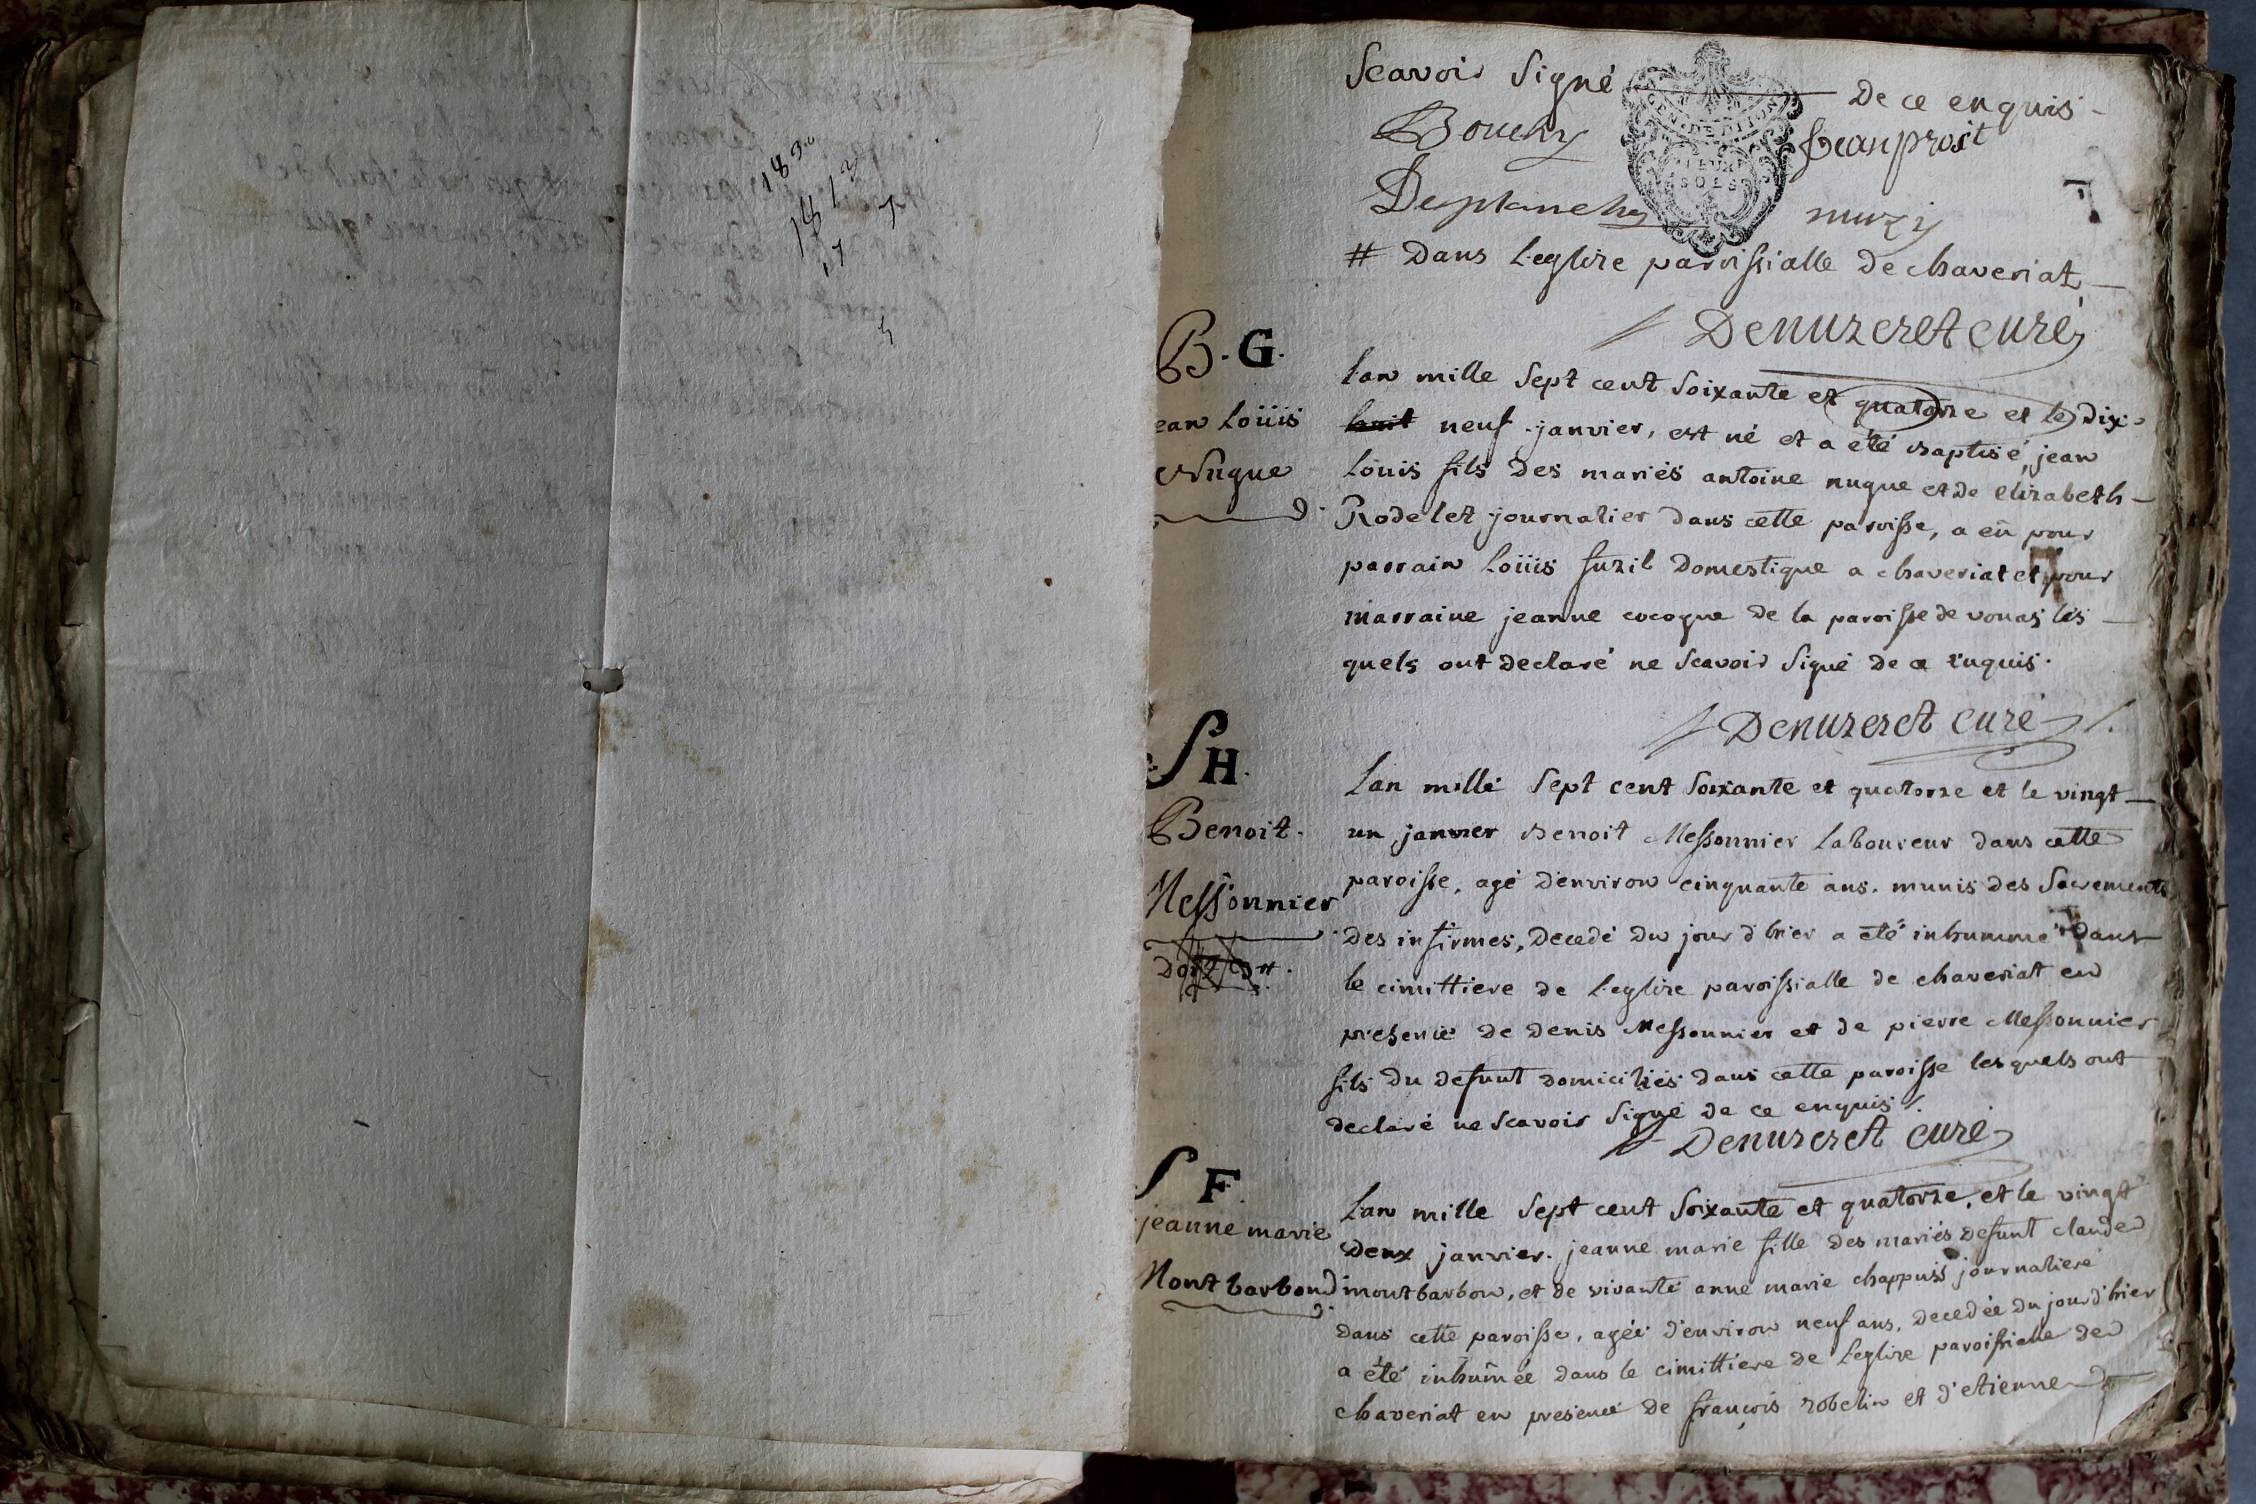 1830
1812
17 7
Scavoir signé De ce enquis -
Bouchy Beauprost
GEN. DE DIJON
DEUX
SOLS
Desplanches muzy
# Dans L'eglise paroissialle De chaveriat
Denuzeret curé
B. G.
ean Loüis
Nugue
L'an mille sept cent soixante et quatorze et le dix-
huit neuf janvier, est né et a été baptisé, jean
Loüis fils Des mariés antoine nugue et de elizabeth
Rodelet journalier Dans cette paroisse, a eû pour
parrain Loüis fuzil Domestique a chaveriat et pour
marraine jeanne cocogne De la paroisse de vonas les
quels ont Declaré ne scavoir signé De ce enquis.
Denuzeret curé
S H.
Benoit
Messonnier
L'an mille sept cent soixante et quatorze et le vingt
un janvier Benoit Messonnier Laboureur Dans cette
paroisse, agé D'environ cinquante ans. munis Des Sacrements
Des infirmes, Decedé Du jour d'hier a été inhummé Dans
le cimittiere De L'eglise paroissialle De chaveriat en
presence De Denis Messonnier et de pierre Messonnier
fils Du Defunt Domiciliés Dans cette paroisse lesquels ont
Declaré ne scavoir signé De ce enquis.
Denuzeret curé
S F.
jeanne marie
Montbarbon
L'an mille sept cent soixante et quatorze, et le vingt
Deux janvier. jeanne marie fille Des mariés Defunt claude
montbarbon, et De vivante anne marie chappuis journaliere
Dans cette paroisse, agée D'environ neuf ans, Decedée Du jour d'hier
a été inhumée Dans le cimittiere De L'eglise paroissialle De
chaveriat en presence De françois robelin et D'etienne